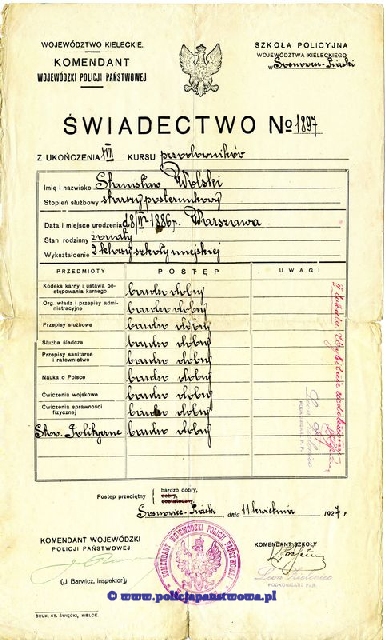 WOJEWÓDZTWO KIELECKIE.
KOMENDANT
WOJEWÓDZKI POLICJI PAŃSTWOWEJ
SZKOŁA POLICYJNA
WOJEWÓDZTWA KIELECKIEGO
w Sosnowcu-
ŚWIADECTWO № 1897
Z UKOŃCZENIA VII KURSU przodowników
Imię i nazwisko Stanisław Wolski
Stopień służbowy starszy posterunkowy
Data i miejsce urodzenia 1886 r. Warszawa
Stan rodzinny żonaty
Wykształcenie 2 klasy szkoły miejskiej
PRZEDMIOTY POSTĘP UWAGI
Kodeks karny i ustawa postępowania karnego bardzo dobry
Org. władz i przepisy administracyjne bardzo dobry
Przepisy służbowe bardzo dobry
Służba śledcza bardzo dobry
Przepisy sanitarne i ratownictwo bardzo dobry
Nauka o Polsce bardzo dobry
Ćwiczenia wojskowe bardzo dobry
Ćwiczenia sprawności fizycznej bardzo dobry
bardzo dobry
Postęp przeciętny bardzo dobry,
dobry,
dnia 11 kwietnia 1927 r
KOMENDANT WOJEWÓDZKI
POLICJI PAŃSTWOWEJ
KOMENDANT SZKOŁY
Inspektor)
© www.policjapanstwowa.pl